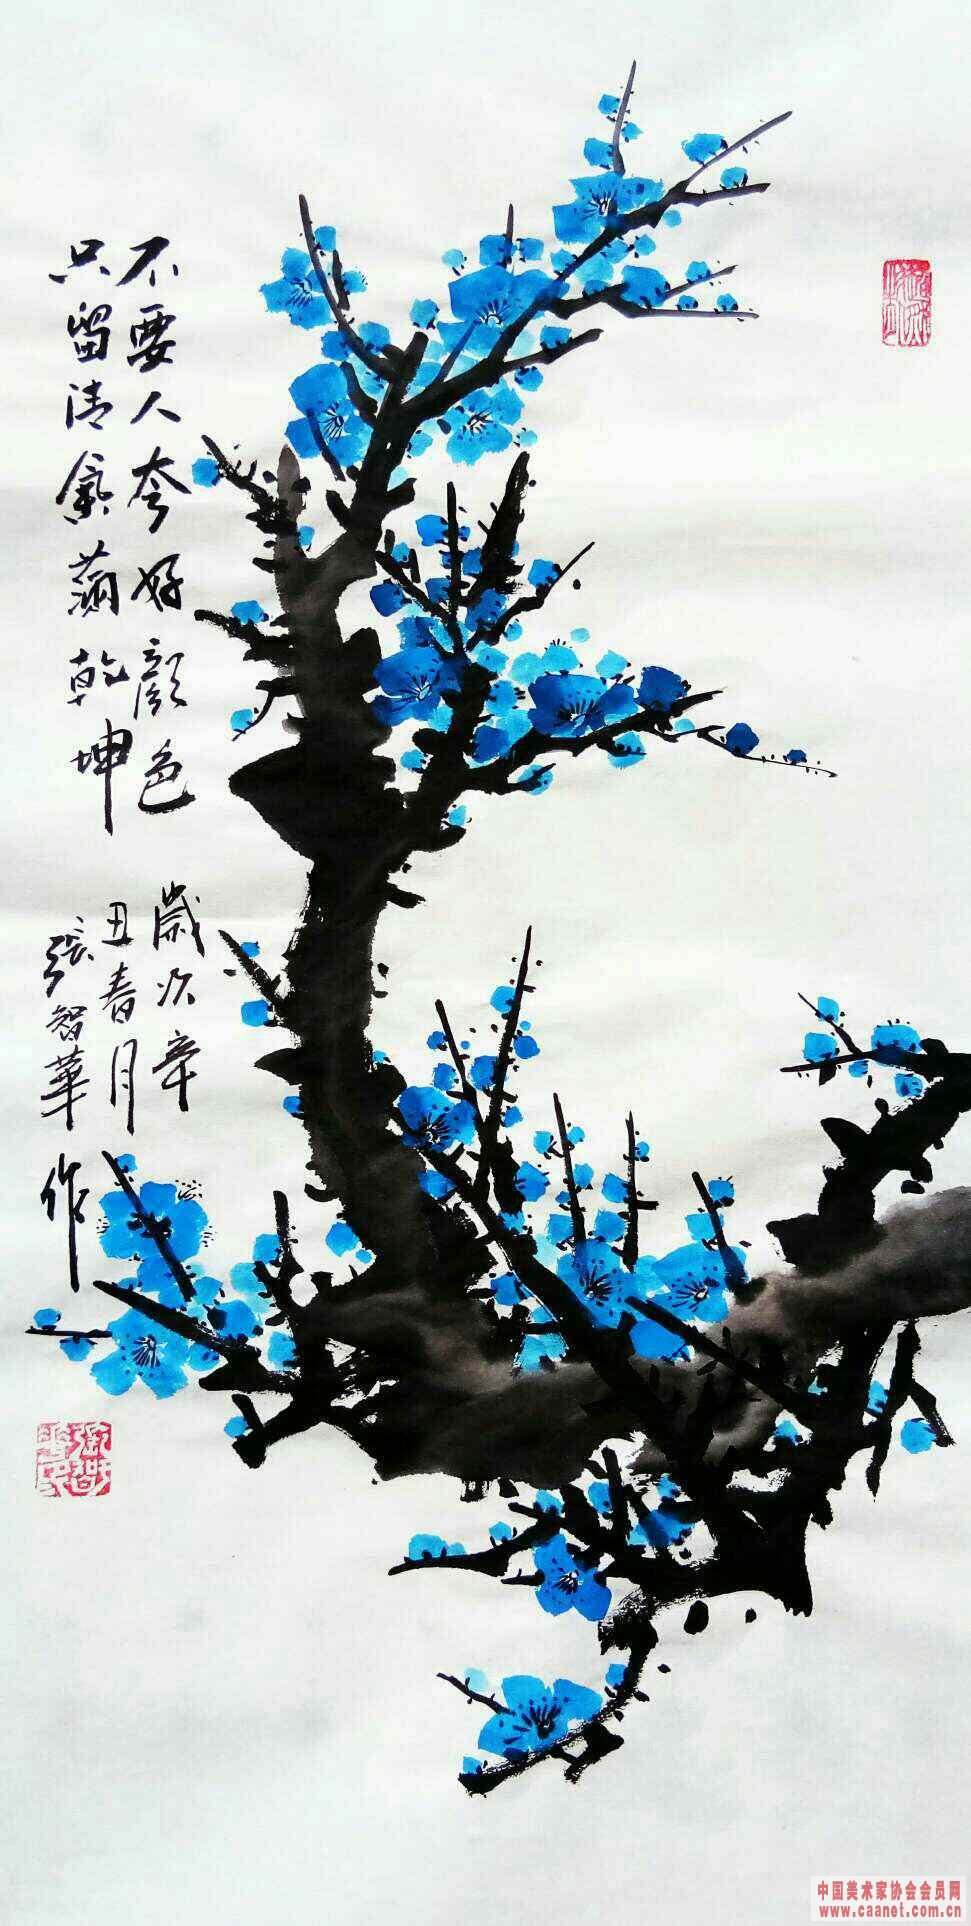 不要人夸好顔色
只留清氣满乾坤
歲次辛
丑春月
張智華作
中国美术家协会会员网
www.caanet.com.cn